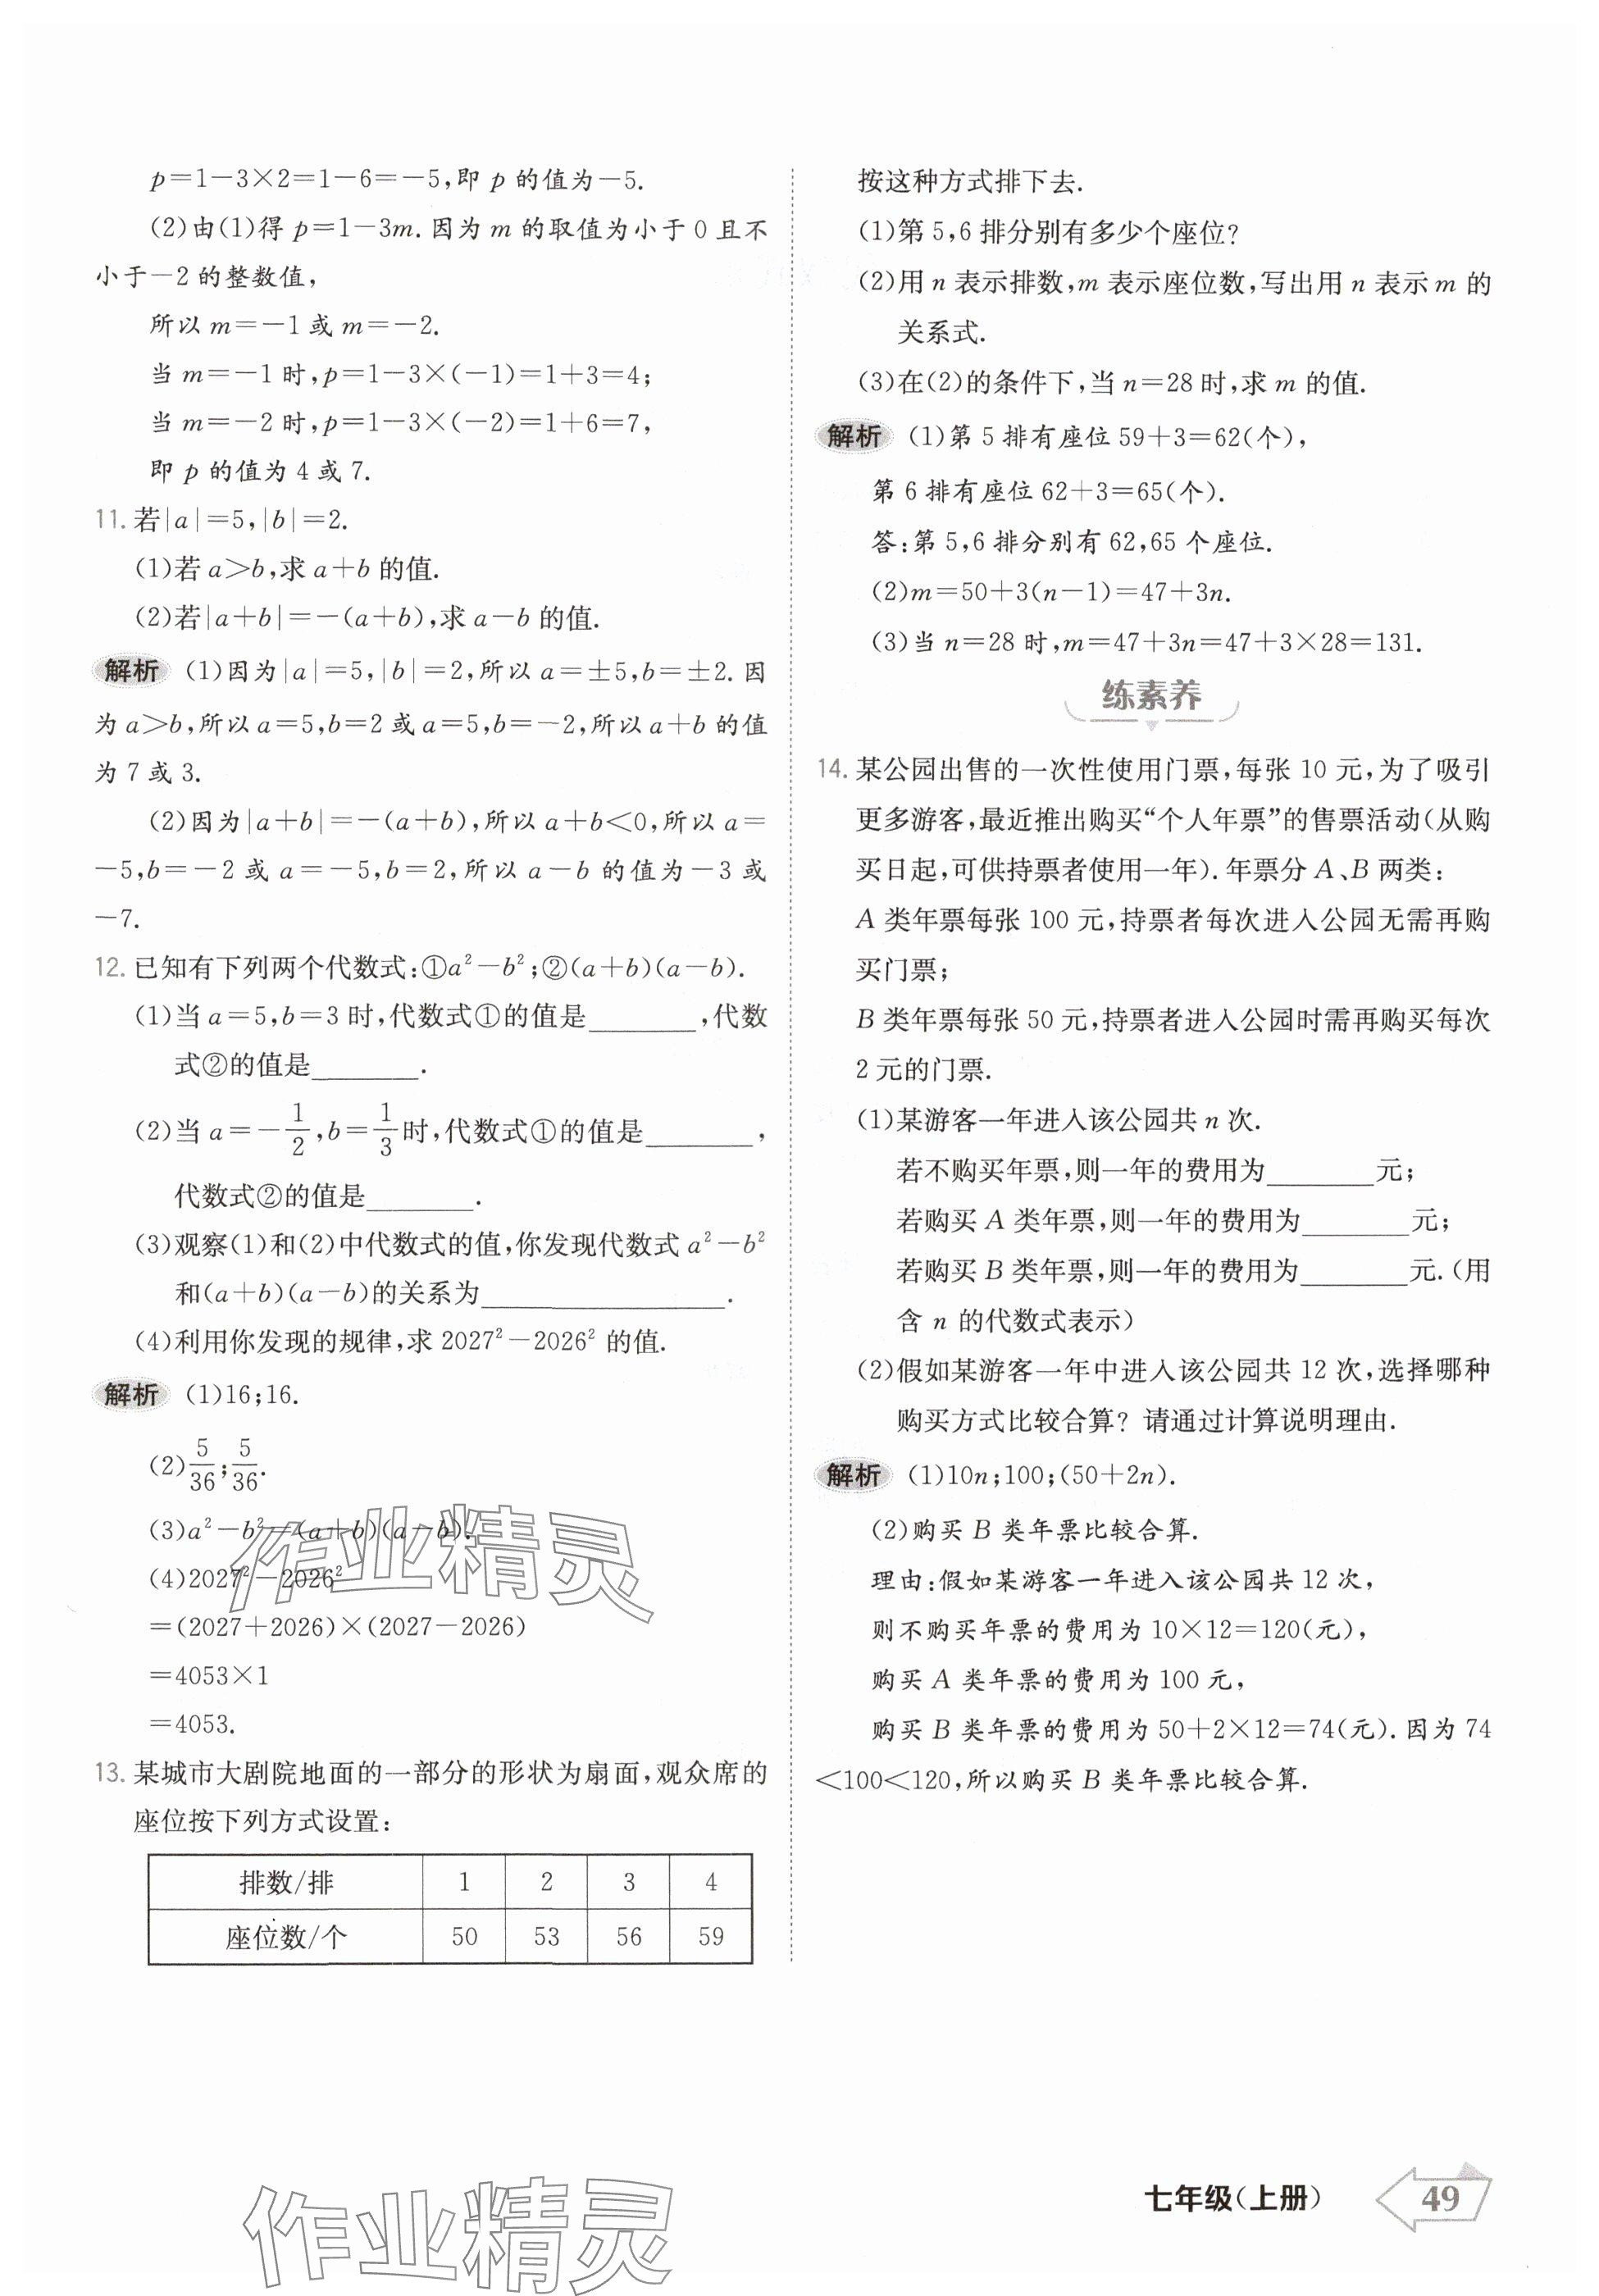 p=1-3×2=1-6=-5,即 p 的值为-5.
(2)由(1)得 p=1-3m.因为 m 的取值为小于 0 且不
小于-2 的整数值,
所以 m=-1 或 m=-2.
当 m=-1 时,p=1-3×(-1)=1+3=4;
当 m=-2 时,p=1-3×(-2)=1+6=7,
即 p 的值为 4 或 7.
11. 若|a|=5,|b|=2.
(1)若 a>b,求 a+b 的值.
(2)若|a+b|=-(a+b),求 a-b 的值.
解析 (1)因为|a|=5,|b|=2,所以 a=±5,b=±2.因
为 a>b,所以 a=5,b=2 或 a=5,b=-2,所以 a+b 的值
为 7 或 3.
(2)因为|a+b|=-(a+b),所以 a+b<0,所以 a=
-5,b=-2 或 a=-5,b=2,所以 a-b 的值为-3 或
-7.
12. 已知有下列两个代数式:①a²-b²;②(a+b)(a-b).
(1)当 a=5,b=3 时,代数式①的值是________,代数
式②的值是________.
(2)当 a=-1/2,b=1/3时,代数式①的值是________,
代数式②的值是________.
(3)观察(1)和(2)中代数式的值,你发现代数式 a²-b²
和(a+b)(a-b)的关系为__________________.
(4)利用你发现的规律,求 2027²-2026² 的值.
解析 (1)16;16.
(2)5/36;5/36.
(3)a²-b²=(a+b)(a-b).
(4)2027²-2026²
=(2027+2026)×(2027-2026)
=4053×1
=4053.
13. 某城市大剧院地面的一部分的形状为扇面,观众席的
座位按下列方式设置:
排数/排 1 2 3 4
座位数/个 50 53 56 59
按这种方式排下去.
(1)第 5,6 排分别有多少个座位?
(2)用 n 表示排数,m 表示座位数,写出用 n 表示 m 的
关系式.
(3)在(2)的条件下,当 n=28 时,求 m 的值.
解析 (1)第 5 排有座位 59+3=62(个),
第 6 排有座位 62+3=65(个).
答:第 5,6 排分别有 62,65 个座位.
(2)m=50+3(n-1)=47+3n.
(3)当 n=28 时,m=47+3n=47+3×28=131.
练素养
14. 某公园出售的一次性使用门票,每张 10 元,为了吸引
更多游客,最近推出购买“个人年票”的售票活动(从购
买日起,可供持票者使用一年).年票分 A、B 两类:
A 类年票每张 100 元,持票者每次进入公园无需再购
买门票;
B 类年票每张 50 元,持票者进入公园时需再购买每次
2 元的门票.
(1)某游客一年进入该公园共 n 次.
若不购买年票,则一年的费用为________元;
若购买 A 类年票,则一年的费用为________元;
若购买 B 类年票,则一年的费用为________元.(用
含 n 的代数式表示)
(2)假如某游客一年中进入该公园共 12 次,选择哪种
购买方式比较合算? 请通过计算说明理由.
解析 (1)10n;100;(50+2n).
(2)购买 B 类年票比较合算.
理由:假如某游客一年进入该公园共 12 次,
则不购买年票的费用为 10×12=120(元),
购买 A 类年票的费用为 100 元,
购买 B 类年票的费用为 50+2×12=74(元).因为 74
<100<120,所以购买 B 类年票比较合算.
作业精灵
作业精灵
七年级(上册) 49